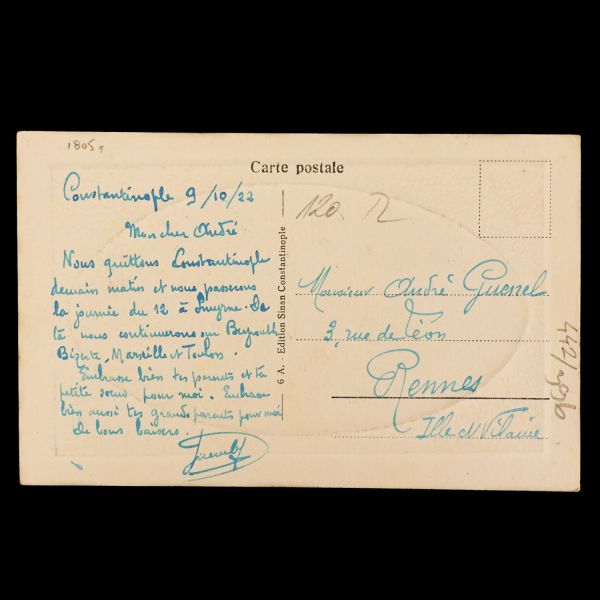 1805,
Carte postale
Constantinople 9/10/22
120. TL
Mon cher André
Nous quittons Constantinople
demain matin et nous passerons
la journée du 12 à Smyrne. De
là nous continuerons sur Beyrouth
Bizerte, Marseille et Toulon.
Embrasse bien tes parents et ta
petite sœur pour moi. Embrasse
bien aussi tes grands parents pour moi
De bons baisers.
6 A. - Edition Sinan Constantinople
Monsieur André Guesnel
3, rue de Léon
Rennes
Ille et Vilaine